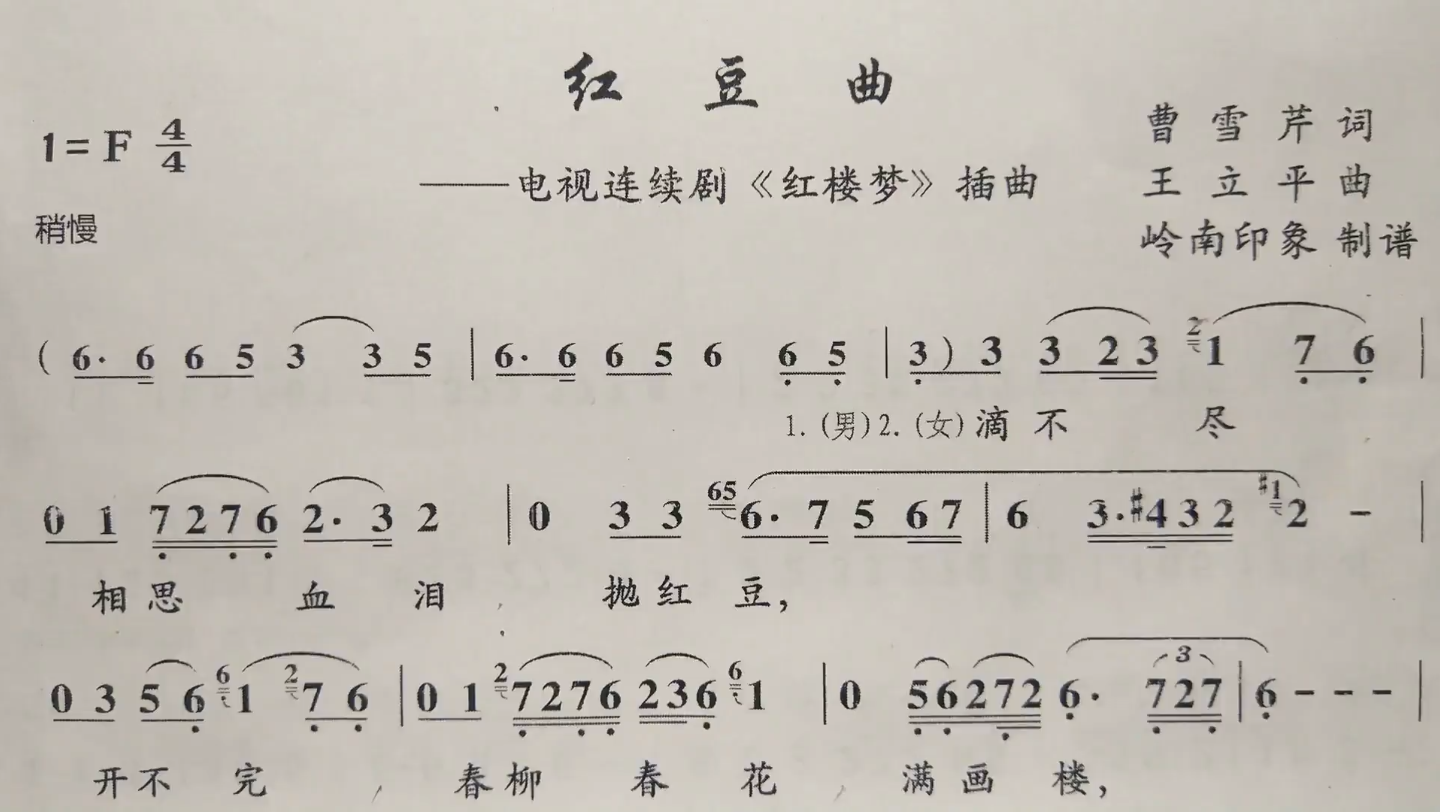 红豆曲
1=F 4/4
——电视连续剧《红楼梦》插曲
稍慢
曹雪芹 词
王立平 曲
岭南印象 制谱
( 6· 6 6 5 3 3 5 | 6· 6 6 5 6 6 5 | 3 ) 3 3 2 3 2 1 7 6 |
1.(男)2.(女)滴不 尽
0 1 7 2 7 6 2· 3 2 | 0 3 3 65 6· 7 5 6 7 | 6 3·#4 3 2 #1 2 - |
相思 血 泪 抛红 豆,
0 3 5 6 6 1 2 7 6 | 0 1 2 7 2 7 6 2 3 6 6 1 | 0 5 6 2 7 2 6· 3 7 2 7 | 6 - - - |
开不 完 春柳 春 花 满画 楼,